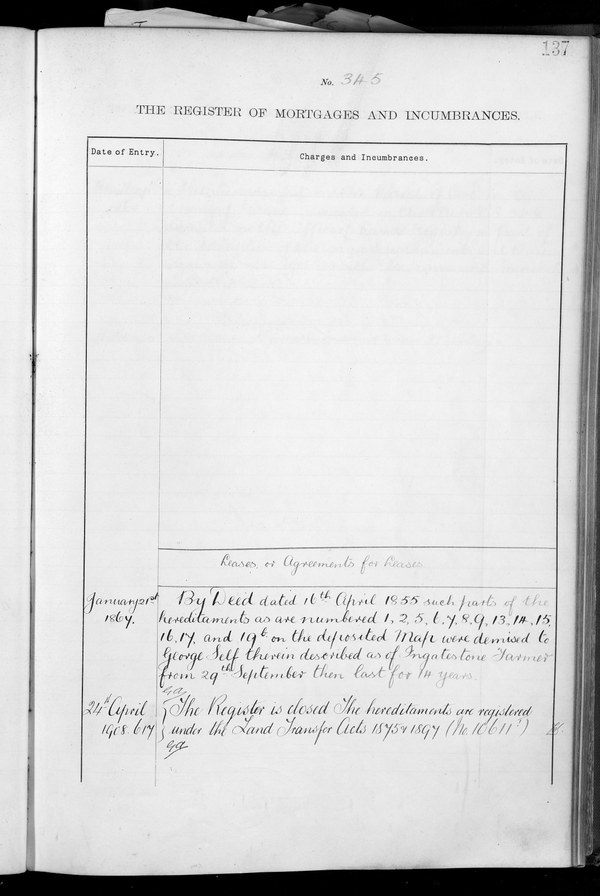 137
No. 345
THE REGISTER OF MORTGAGES AND INCUMBRANCES.
Date of Entry.
Charges and Incumbrances.
Leases or Agreements for Leases
January 21st
1867.
By Deed dated 16th April 1855 such parts of the
hereditaments as are numbered 1, 2, 5, 6, 7, 8, 9, 13, 14, 15,
16, 17, and 19 on the deposited Map were demised to
George Self therein described as of Ingatestone Farmer
from 29th September then last for 14 years.
24th April
1908.
The Register is closed The hereditaments are registered
under the Land Transfer Acts 1875 & 1897 (No 10611)